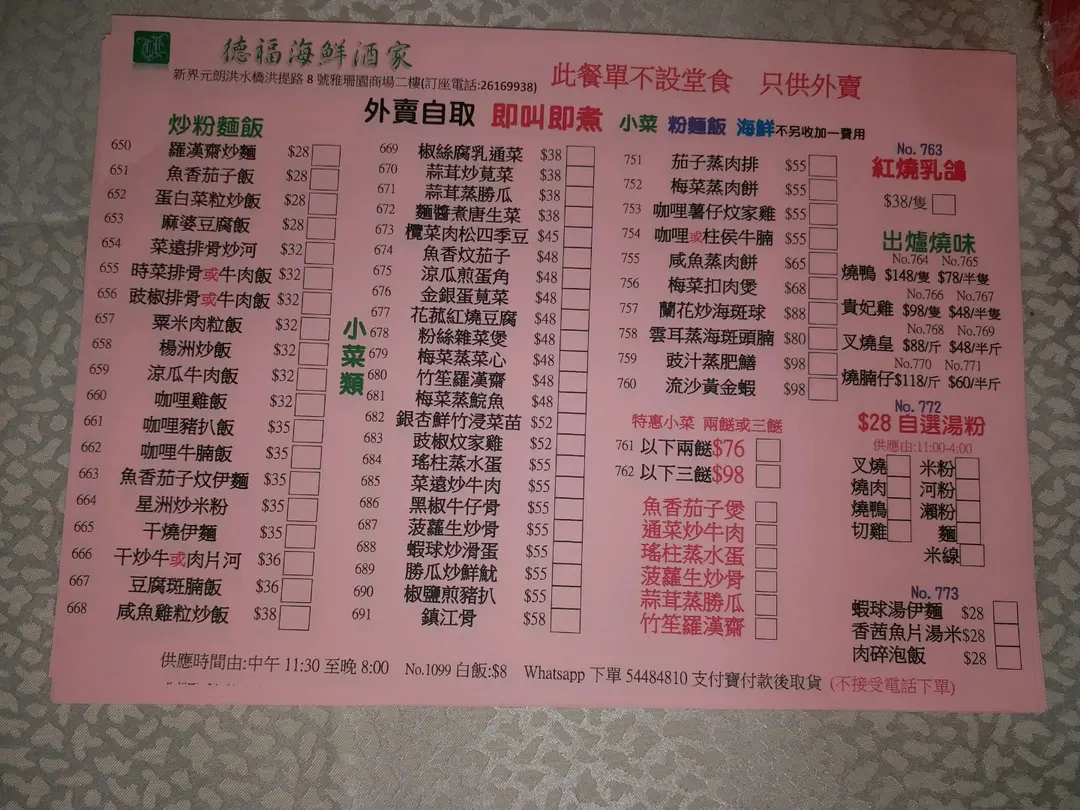 德福海鮮酒家
新界元朗洪水橋洪提路 8 號雅珊園商場二樓(訂座電話:26169938)
此餐單不設堂食 只供外賣
外賣自取 即叫即煮 小菜 粉麵飯 海鮮不另收加一費用
炒粉麵飯
650 羅漢齋炒麵 $28
651 魚香茄子飯 $28
652 蛋白菜粒炒飯 $28
653 麻婆豆腐飯 $28
654 菜遠排骨炒河 $32
655 時菜排骨或牛肉飯 $32
656 豉椒排骨或牛肉飯 $32
657 粟米肉粒飯 $32
658 楊洲炒飯 $32
659 涼瓜牛肉飯 $32
660 咖哩雞飯 $32
661 咖哩豬扒飯 $35
662 咖哩牛腩飯 $35
663 魚香茄子炆伊麵 $35
664 星洲炒米粉 $35
665 干燒伊麵 $35
666 干炒牛或肉片河 $36
667 豆腐斑腩飯 $36
668 咸魚雞粒炒飯 $38
小菜類
669 椒絲腐乳通菜 $38
670 蒜茸炒莧菜 $38
671 蒜茸蒸勝瓜 $38
672 麵醬煮唐生菜 $38
673 欖菜肉松四季豆 $45
674 魚香炆茄子 $48
675 涼瓜煎蛋角 $48
676 金銀蛋莧菜 $48
677 花菰紅燒豆腐 $48
678 粉絲雜菜煲 $48
679 梅菜蒸菜心 $48
680 竹笙羅漢齋 $48
681 梅菜蒸鯇魚 $48
682 銀杏鮮竹浸菜苗 $52
683 豉椒炆家雞 $52
684 瑤柱蒸水蛋 $55
685 菜遠炒牛肉 $55
686 黑椒牛仔骨 $55
687 菠蘿生炒骨 $55
688 蝦球炒滑蛋 $55
689 勝瓜炒鮮魷 $55
690 椒鹽煎豬扒 $55
691 鎮江骨 $58
751 茄子蒸肉排 $55
752 梅菜蒸肉餅 $55
753 咖哩薯仔炆家雞 $55
754 咖哩或柱侯牛腩 $55
755 咸魚蒸肉餅 $65
756 梅菜扣肉煲 $68
757 蘭花炒海斑球 $88
758 雲耳蒸海斑頭腩 $80
759 豉汁蒸肥鱔 $98
760 流沙黃金蝦 $98
特惠小菜 兩餸或三餸
761 以下兩餸$76
762 以下三餸$98
魚香茄子煲
通菜炒牛肉
瑤柱蒸水蛋
菠蘿生炒骨
蒜茸蒸勝瓜
竹笙羅漢齋
No. 763
紅燒乳鴿
$38/隻
出爐燒味
No.764 No.765
燒鴨 $148/隻 $78/半隻
No.766 No.767
貴妃雞 $98/隻 $48/半隻
No.768 No.769
叉燒皇 $88/斤 $48/半斤
No.770 No.771
燒腩仔$118/斤 $60/半斤
No. 772
$28 自選湯粉
供應由:11:00-4:00
叉燒 米粉
燒肉 河粉
燒鴨 瀨粉
切雞 麵
米線
No. 773
蝦球湯伊麵 $28
香茜魚片湯米$28
肉碎泡飯 $28
供應時間由:中午 11:30 至晚 8:00 No.1099 白飯:$8 Whatsapp 下單 54484810 支付寶付款後取貨 (不接受電話下單)